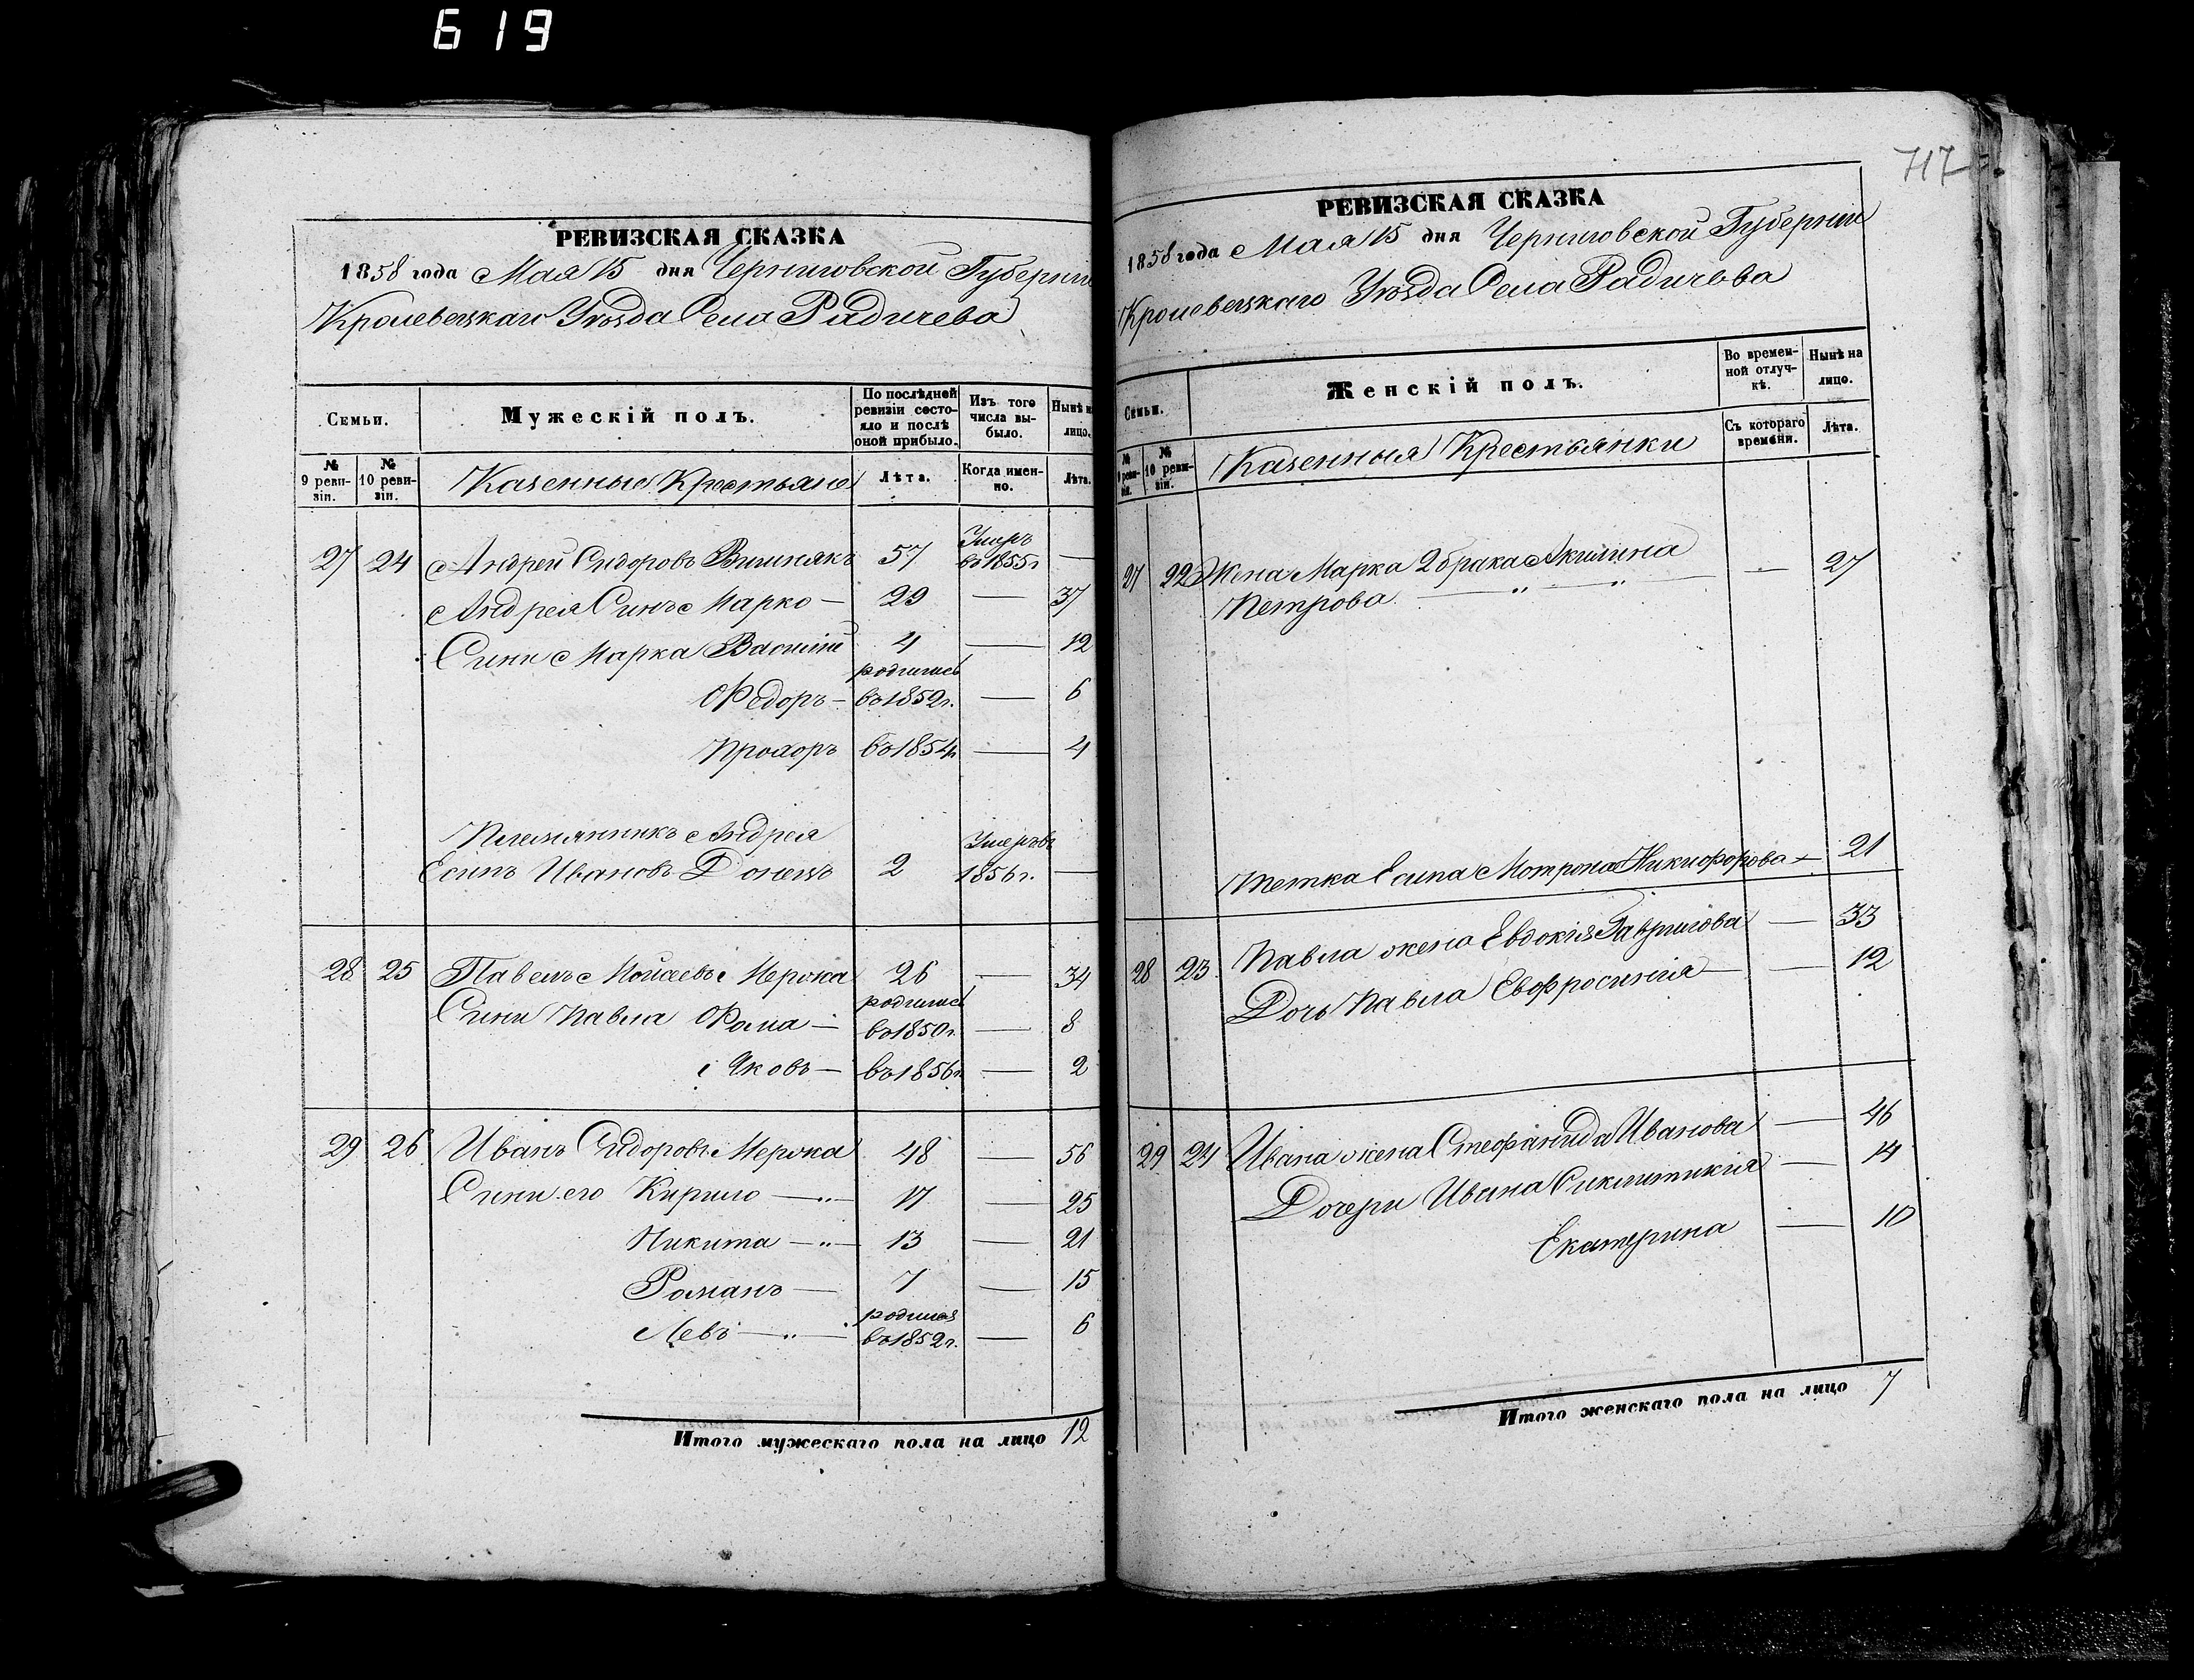 619
РЕВИЗСКАЯ СКАЗКА
1858 года Мая 15 дня Черниговской Губерніи
Кролевецкаго Уѣзда Села Радичева
Семьи.
Мужескій полъ.
По послѣдней ревизіи состояло и послѣ оной прибыло.
Изъ того числа выбыло.
Нынѣ н
лицо.
№ 9 ревизіи.
№ 10 ревизіи.
Казенные Крестьяне
Лѣта.
Когда именно.
Лѣта.
27 24 Андрей Сидоровъ Вишнякъ 57 Умеръ въ 1855 г —
Андрея Синъ Марко — 29 — 37
Сини Марка Василій 4 — 12
Федоръ — родились въ 1852 г. — 6
Прохоръ въ 1854 г — 4
Племянникъ Андрея
Есипъ Ивановъ Донецъ 2 Умеръ въ 1856 г. —
28 25 Павелъ Мойсеевъ Мерока 26 — 34
Сини Павла Фома — родились въ 1850 г. — 8
Яковъ — въ 1856 г. — 2
29 26 Иванъ Сидоровъ Мерока 48 — 56
Сини его Кирило — „ — 17 — 25
Никита — „ — 13 — 21
Романъ — 7 — 15
Левъ — „ — родился въ 1852 г. — 6
Итого мужескаго пола на лицо 12
717
РЕВИЗСКАЯ СКАЗКА
1858 года Мая 15 дня Черниговской Губерніи
Кролевецкаго Уѣзда Села Радичева
Семьи.
Женскій полъ.
Во временной отлучкѣ.
Нынѣ на лицо.
№ 9 ревизіи.
№ 10 ревизіи.
Казенныя Крестьянки
Съ котораго времени.
Лѣта.
27 22 Жена Марка 2 брака Акилина — 27
Петрова — „ —
Тетка Есипа Мотрона Никифорова — 21
28 23 Павла жена Евдокія Гаврилова — 33
Дочь Павла Евфросинія — — 12
29 24 Ивана жена Стефанида Иванова — 46
Дочери Ивана Синклитикія — 14
Екатерина — 10
Итого женскаго пола на лицо 7